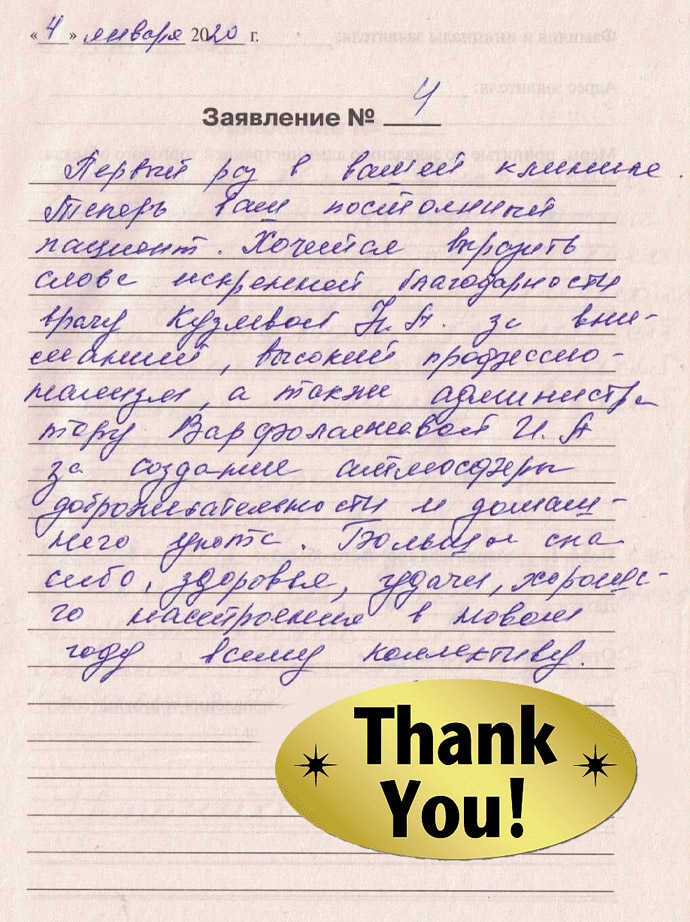 «4» января 2020 г.
Заявление № 4
Первый раз в вашей клинике.
Теперь ваш постоянный
пациент. Хочется выразить
слова искренней благодарности
врачу Кузмевой Н.А. за вни-
мание, высокий профессио-
нализм, а также администра
тору Варфоламеевой И.А
за создание атмосферы
доброжелательности и домаш-
него уюта. Большое спа
сибо, здоровья, удачи, хороше-
го настроения в новом
году всему коллективу.
Thank
You!